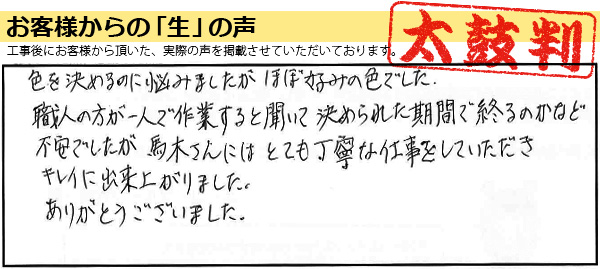 お客様からの「生」の声
工事後にお客様から頂いた、実際の声を掲載させていただいております。
太鼓判
色を決めるのに悩みましたが ほぼ好みの色でした.
職人の方が一人で作業すると聞いて 決められた期間で終るのかなど
不安でしたが 馬木さんには とても丁寧な仕事をしていただき
キレイに出来上がりました.
ありがとうございました.